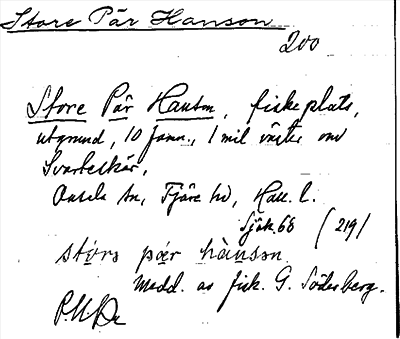 Store Pär Hanson
200
Store Pär Hanson, fiskeplats,
utgrund, 10 famn., 1 mil väster om
Svarteskär,
Onsala sn, Fjäre hd, Hall. l.
Sjök. 68 (219)
stórs pæ̀r hànson
Medd. av fisk. G. Söderberg.